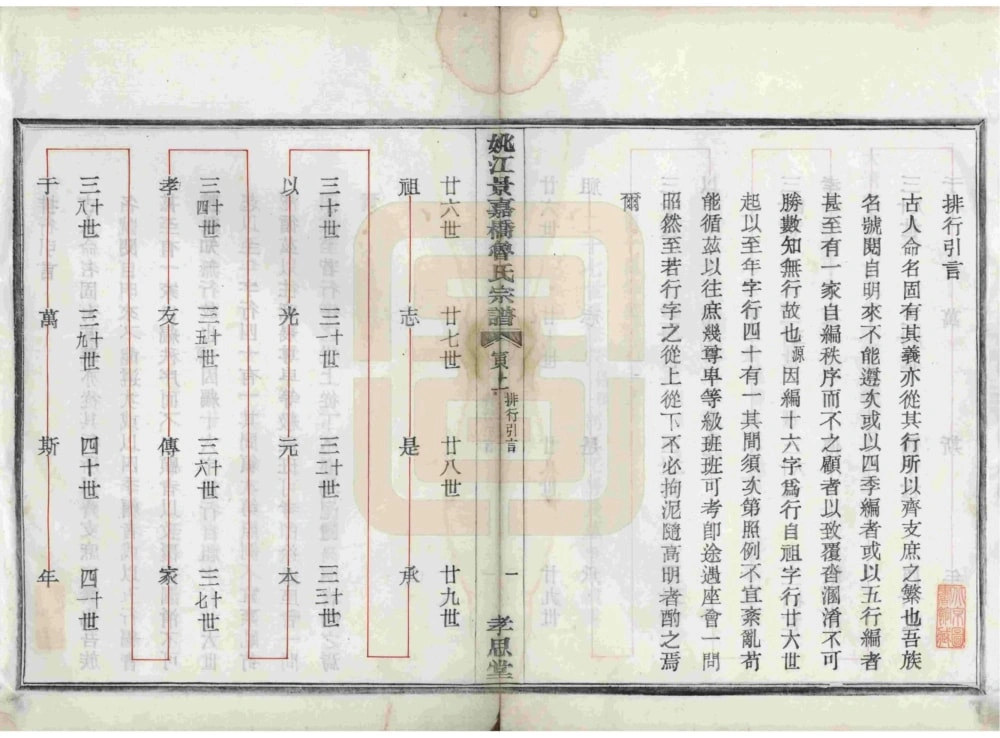 排行引言
古人命名固有其義亦從其行所以齊支庶之繁也吾族
名號閱自明來不能遵次或以四季編者或以五行編者
甚至有一家自編秩序而不之顧者以致覆沓溷淆不可
勝數知無行故也源因編十六字爲行自祖字行廿六世
起以至年字行四十有一其間須次第照例不宜紊亂苟
能循茲以往庶幾尊卑等級班班可考卽途遇座會一問
昭然至若行字之從上從下不必拘泥隨高明者酌之焉
爾
姚江景嘉橋魯氏宗譜 排行引言 一 孝思堂
廿六世 廿七世 廿八世 廿九世
祖 志 是 承
三十世 三十一世 三十二世 三十三世
以 光 元 本
三十四世 三十五世 三十六世 三十七世
孝 友 傳 家
三十八世 三十九世 四十世 四十一世
于 萬 斯 年